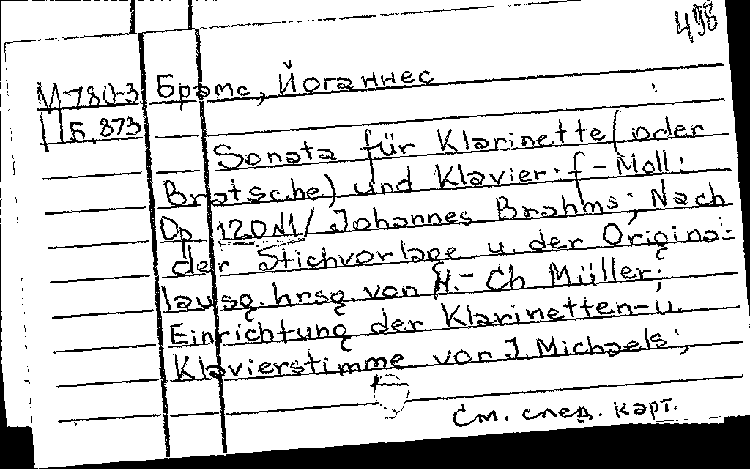 498
М-780-3 Брамс, Йоганнес
Б.873
Sonata für Klarinette (oder
Bratsche) und Klavier: f-Moll:
Op 120 N1/ Johannes Brahms; Nach
der Stichvorlage u. der Origina-
lausg. hrsg. von H.-Ch Müller;
Einrichtung der Klarinetten-u.
Klavierstimme von J. Michaels;
См. след. карт.